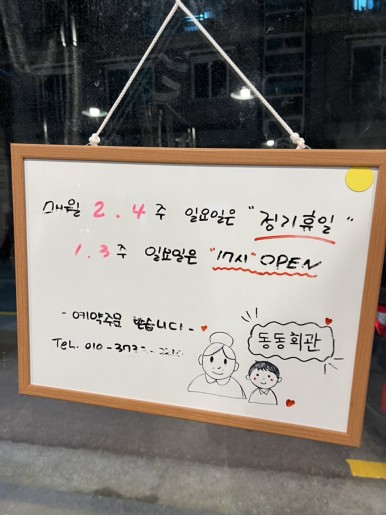 매월 2.4주 일요일은 "정기휴일"
1.3주 일요일은 "17시" OPEN
- 예약주문 받습니다 -
동동회관
TEL. 010-